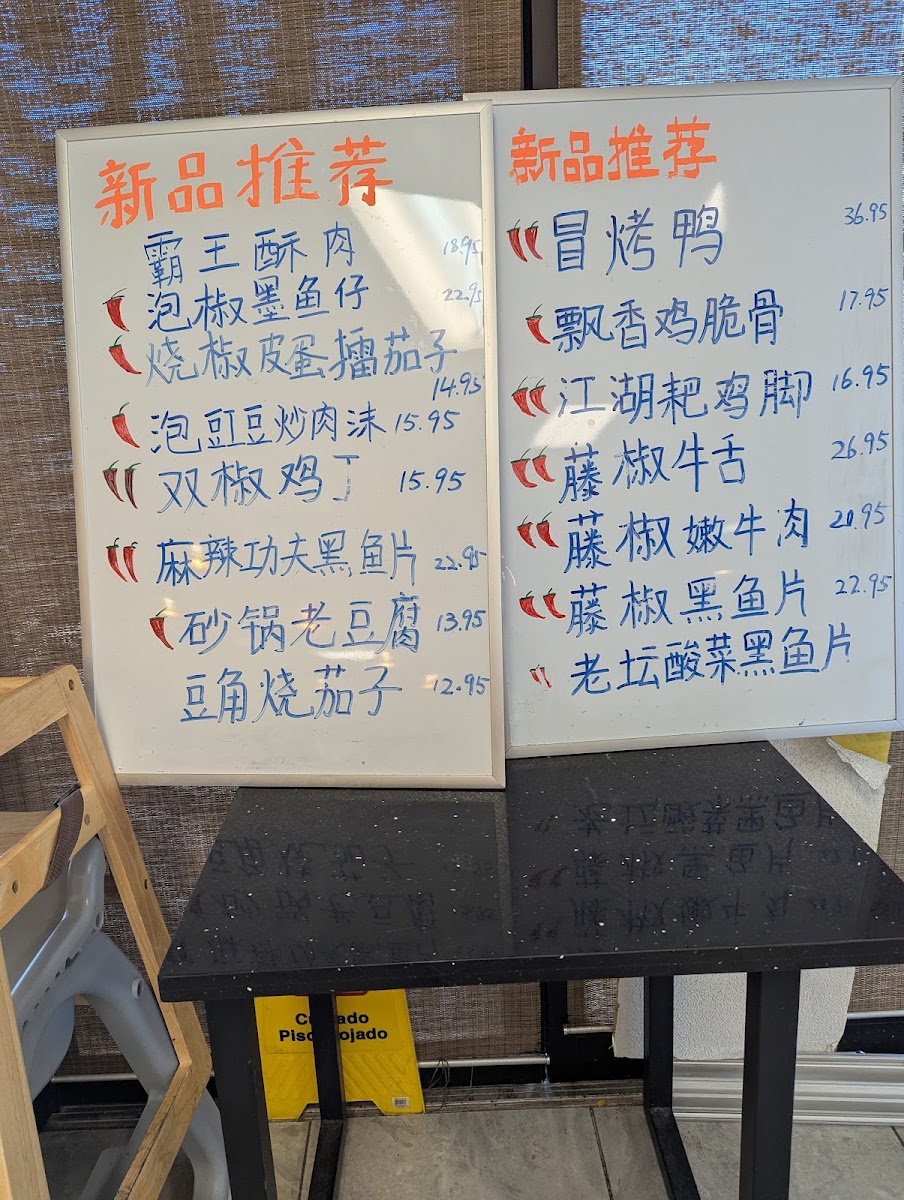 新品推荐
霸王酥肉 18.95
泡椒墨鱼仔 22.95
烧椒皮蛋擂茄子
14.95
泡豇豆炒肉沫 15.95
双椒鸡丁 15.95
麻辣功夫黑鱼片 22.95
砂锅老豆腐 13.95
豆角烧茄子 12.95
新品推荐
冒烤鸭 36.95
飘香鸡脆骨 17.95
江湖耙鸡脚 16.95
藤椒牛舌 26.95
藤椒嫩牛肉 20.95
藤椒黑鱼片 22.95
老坛酸菜黑鱼片